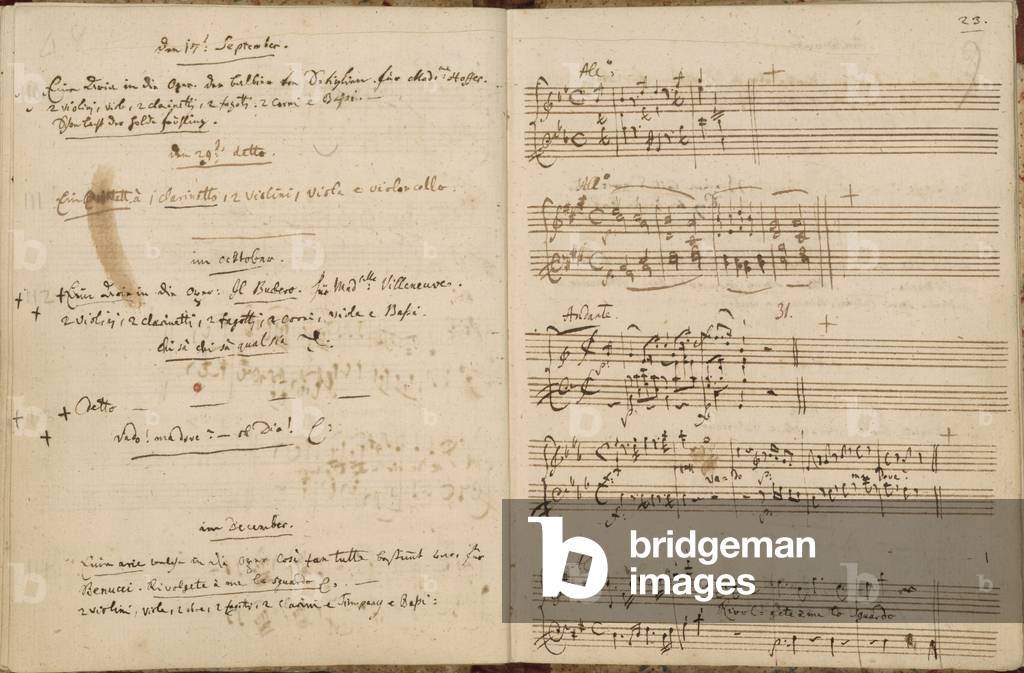 Den 17t: September.
Eine Aria in die Oper. der balbier von Seviglien. für Mad:me Hoffer.
2 violini, viole, 2 clarinetti, 2 fagotti. 2 Corni e Baßi.—
Schon lacht der holde frühling.
den 29t: detto.
Ein Quintett, à 1 clarinetto, 2 violini, viola e violoncello.
im ocktober.
Eine Aria in die Oper: Il Burbero. für Mad:selle Villeneuve.
2 violini, 2 clarinetti, 2 fagotti, 2 Corni, viole e Baßi.
chi sà chi sà qual sia
detto —
vado! ma dove? — oh Dio!
im December.
Eine arie welche in die Oper Così fan tutte bestimmt war. für
Benucci. Rivolgete à me lo sguardo —
2 violini, viole, 2 oboe, 2 fagotti, 2 Clarini e Timpany e Baßi:
23.
All:o
All:o
Andante.
31.
va=do
ma Dove?
Rivol=gete à me lo sguardo
b
bridgeman
images